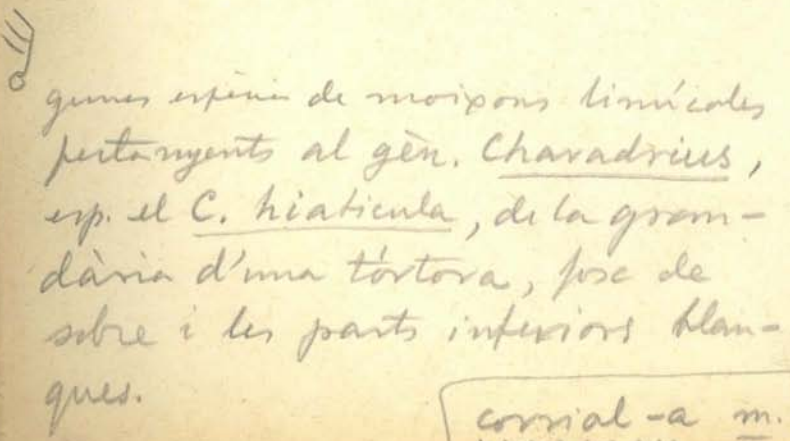 gunes espècies de moixons limícoles
pertanyents al gèn. Charadrius,
esp. el C. hiaticula, de la gran-
dària d'una tórtora, fosc de
sobre i les parts inferiors blan-
ques.
corrial -a m.